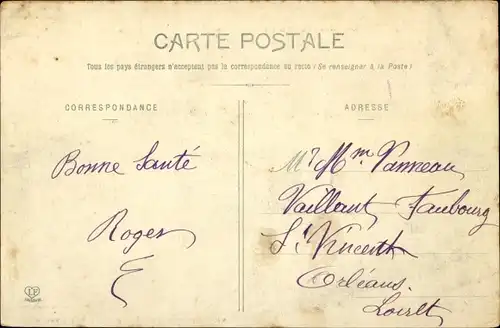 CARTE POSTALE
Tous les pays étrangers n'acceptent pas la correspondance au recto (Se renseigner à la Poste)
CORRESPONDANCE
ADRESSE
Bonne Santé
Roger
Mr Mme Panneau
Vaillant Faubourg
St Vincent
Orléans.
Loiret